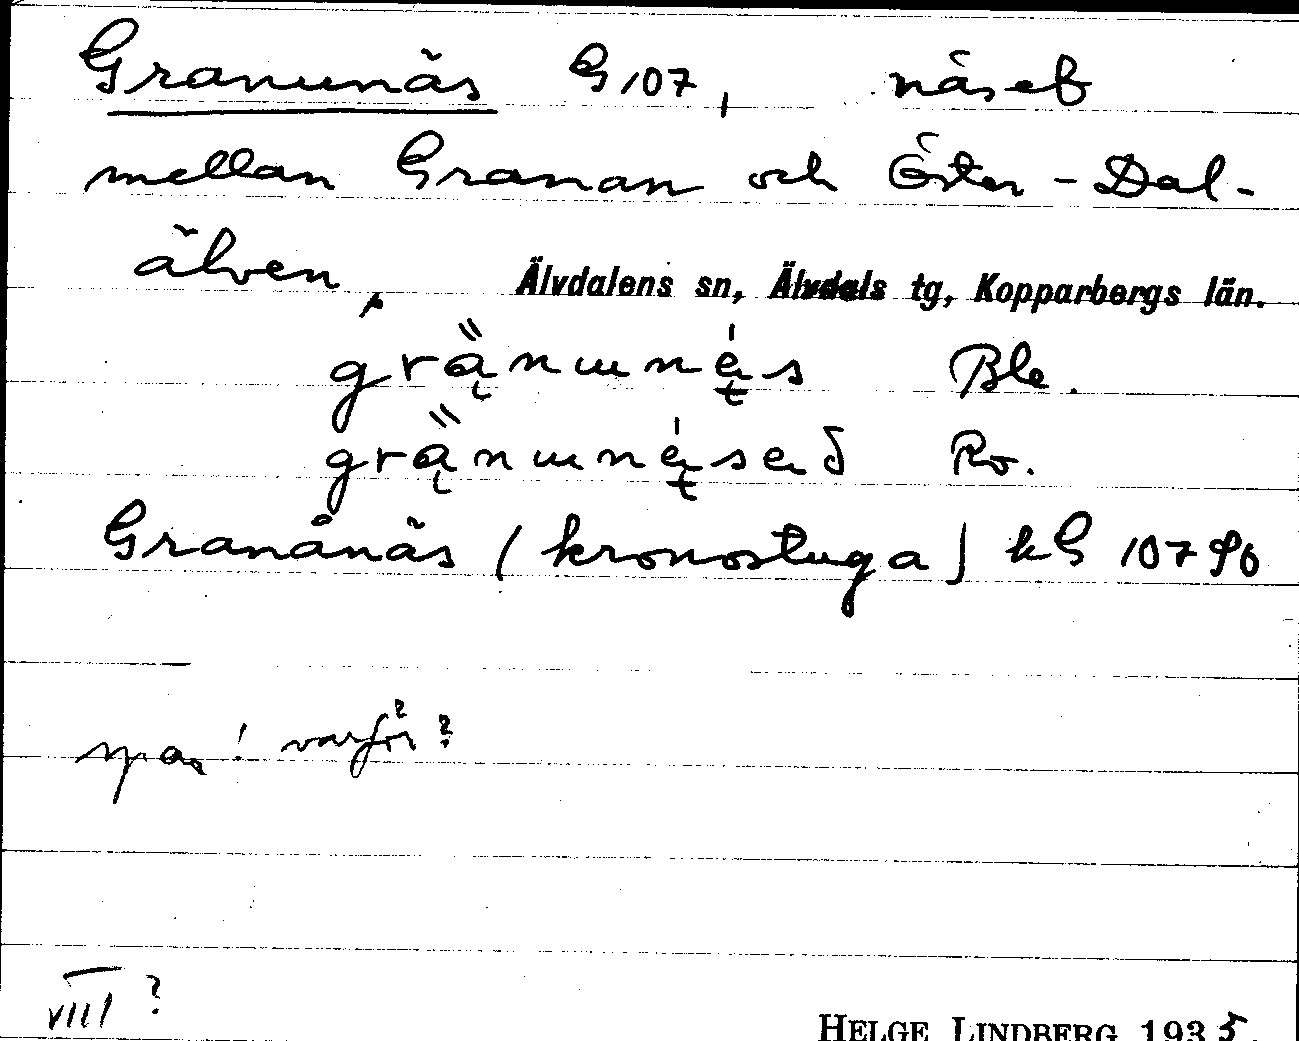 Granunäs G 107, näset
mellan Granan och Öster-Dal-
älven, Älvdalens sn, Älvdals tg, Kopparbergs län.
Ble.
Ro.
Granånäs (kronostuga) kG 107 9b
! varför?
VIII ?
HELGE LINDBERG 1935.